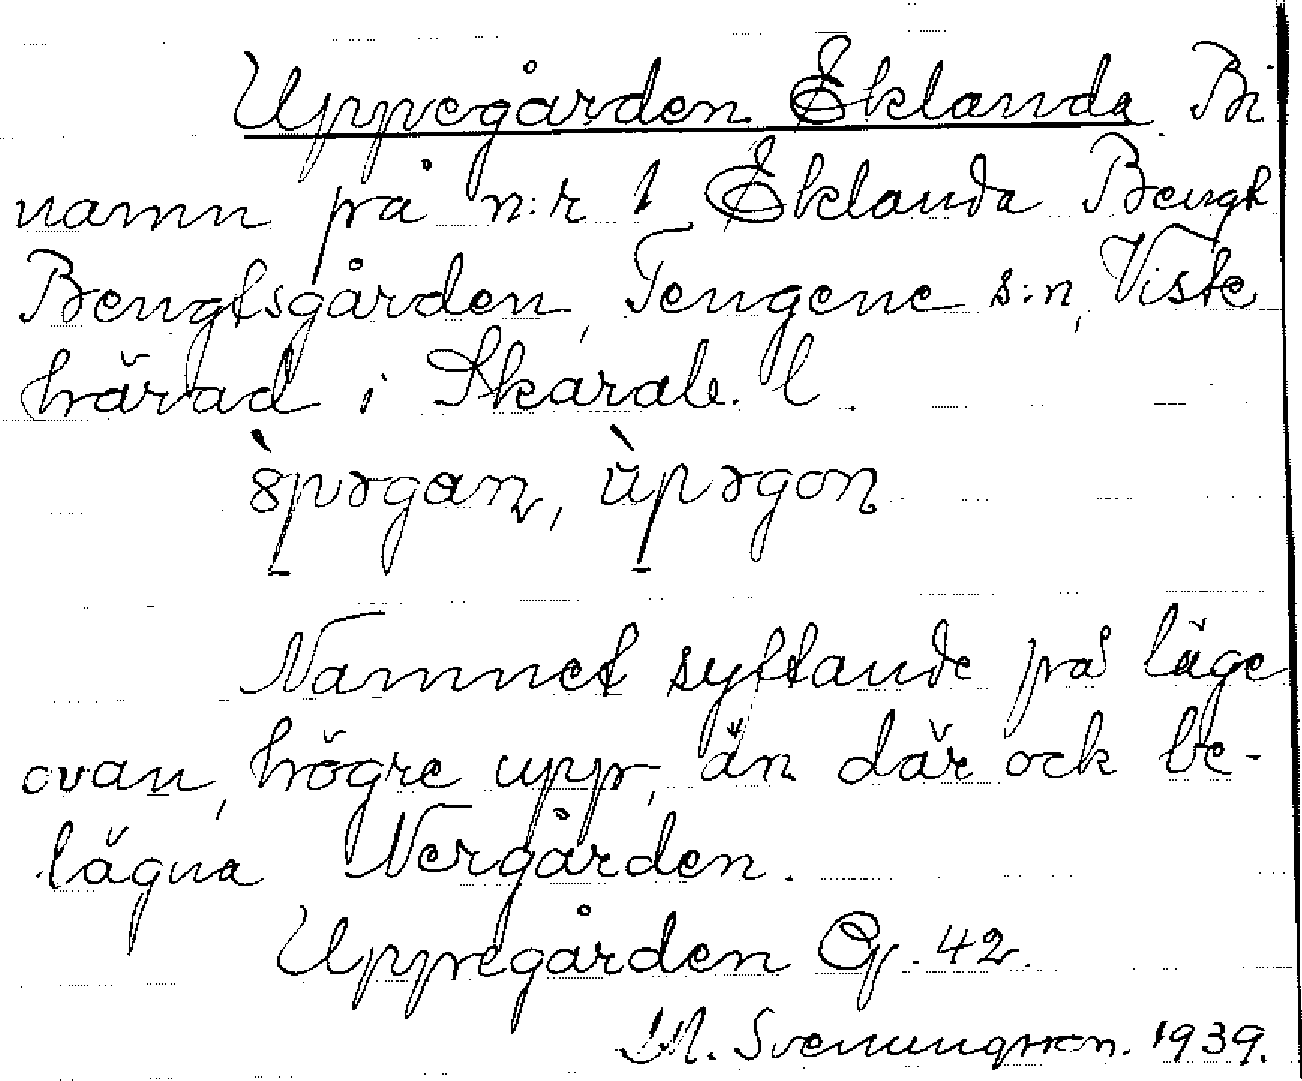 Uppegården Eklanda Bi
namn på n:r 1 Eklanda Bengt
Bengtsgården, Tengene s:n, Viste
härad i Skarab. l.
Namnet syftande på läge
ovan, högre upp, än där ock be-
lägna Nergården.
Uppegården Oj. 42.
M. Svenungsson. 1939.